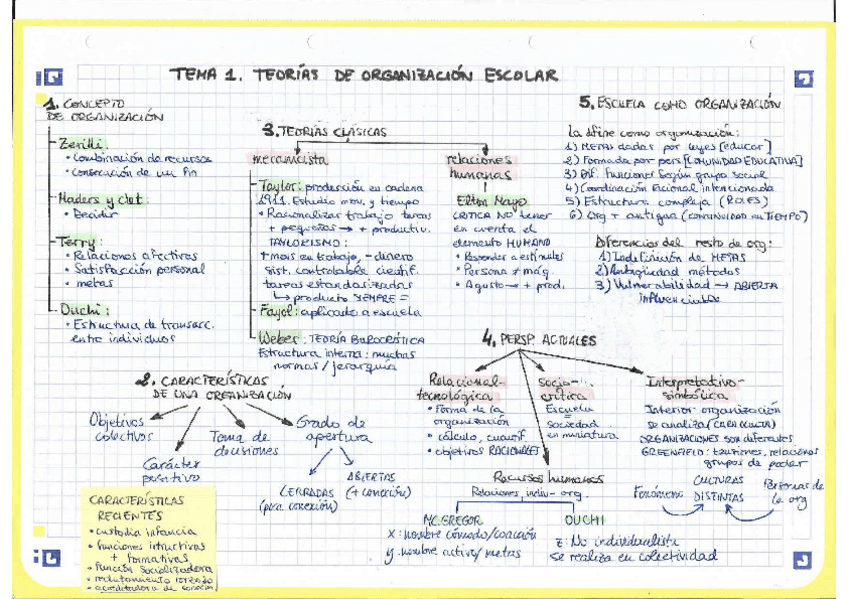 TEMA 1. TEORÍAS DE ORGANIZACIÓN ESCOLAR
1. CONCEPTO
DE ORGANIZACIÓN
Zerilli:
• Combinación de recursos
• Consecución de un fin
Haders y clet:
• Decidir
Terry:
• Relaciones afectivas
• Satisfacción personal
• metas
Ouchi:
• Estructura de transacc.
entre individuos
2. CARACTERÍSTICAS
DE UNA ORGANIZACIÓN
Objetivos
colectivos
Carácter
Toma de
decisiones
Grado de
apertura
CERRADAS
(poca conexión)
ABIERTAS
(+ conexión)
CARACTERÍSTICAS
RECIENTES
• custodia infancia
• funciones
+ formativas
• función socializadora
• reclutamiento forzado
• acreditadora de
3. TEORÍAS CLÁSICAS
mecanicista
Taylor: producción en cadena
1911. Estudio mov. y tiempo
• Racionalizar trabajo tareas
+ pequeñas → + productiv.
TAYLORISMO:
↑ mas en trabajo, - dinero
sist. controlable científ.
tareas estandarizadas
↳ producto SIEMPRE =
Fayol: aplicado a escuela
Weber: TEORÍA BUROCRÁTICA
Estructura interna: muchas
normas / jerarquía
relaciones
humanas
Elton Mayo
CRITICA NO tener
en cuenta el
elemento HUMANO
• Responder a estímulos
• Persona ≠ máq.
• Agusto → + prod.
4. PERSP. ACTUALES
Racional-
tecnológica
• Forma de la
organización
• cálculo, cuantif.
• objetivos RACIONALES
Socio-
crítica
Escuela
=
sociedad
en miniatura
Interpretativo-
simbólica
Interior organización
se analiza (CARA OCULTA)
ORGANIZACIONES son diferentes
GREENFIELD: tensiones, relaciones
grupos de poder
Fenómeno
CULTURAS
DISTINTAS
Personas de
la org
Recursos humanos
Relaciones indiv - org.
MC.GREGOR
X: hombre cómodo/coacción
y: hombre activo/metas
OUCHI
z: No individualista
se realiza en colectividad
5. ESCUELA COMO ORGANIZACIÓN
La define como organización:
1) METAS dadas por leyes [educar]
2) Formada por pers [COMUNIDAD EDUCATIVA]
3) Dif. Funciones según grupo social
4) Coordinación racional intencionada
5) Estructura compleja (ROLES)
6) Org + antigua (CONTINUIDAD en TIEMPO)
Diferencias del resto de org:
1) Indefinición de METAS
2) Ambigüedad métodos
3) Vulnerabilidad → ABIERTA
influenciable